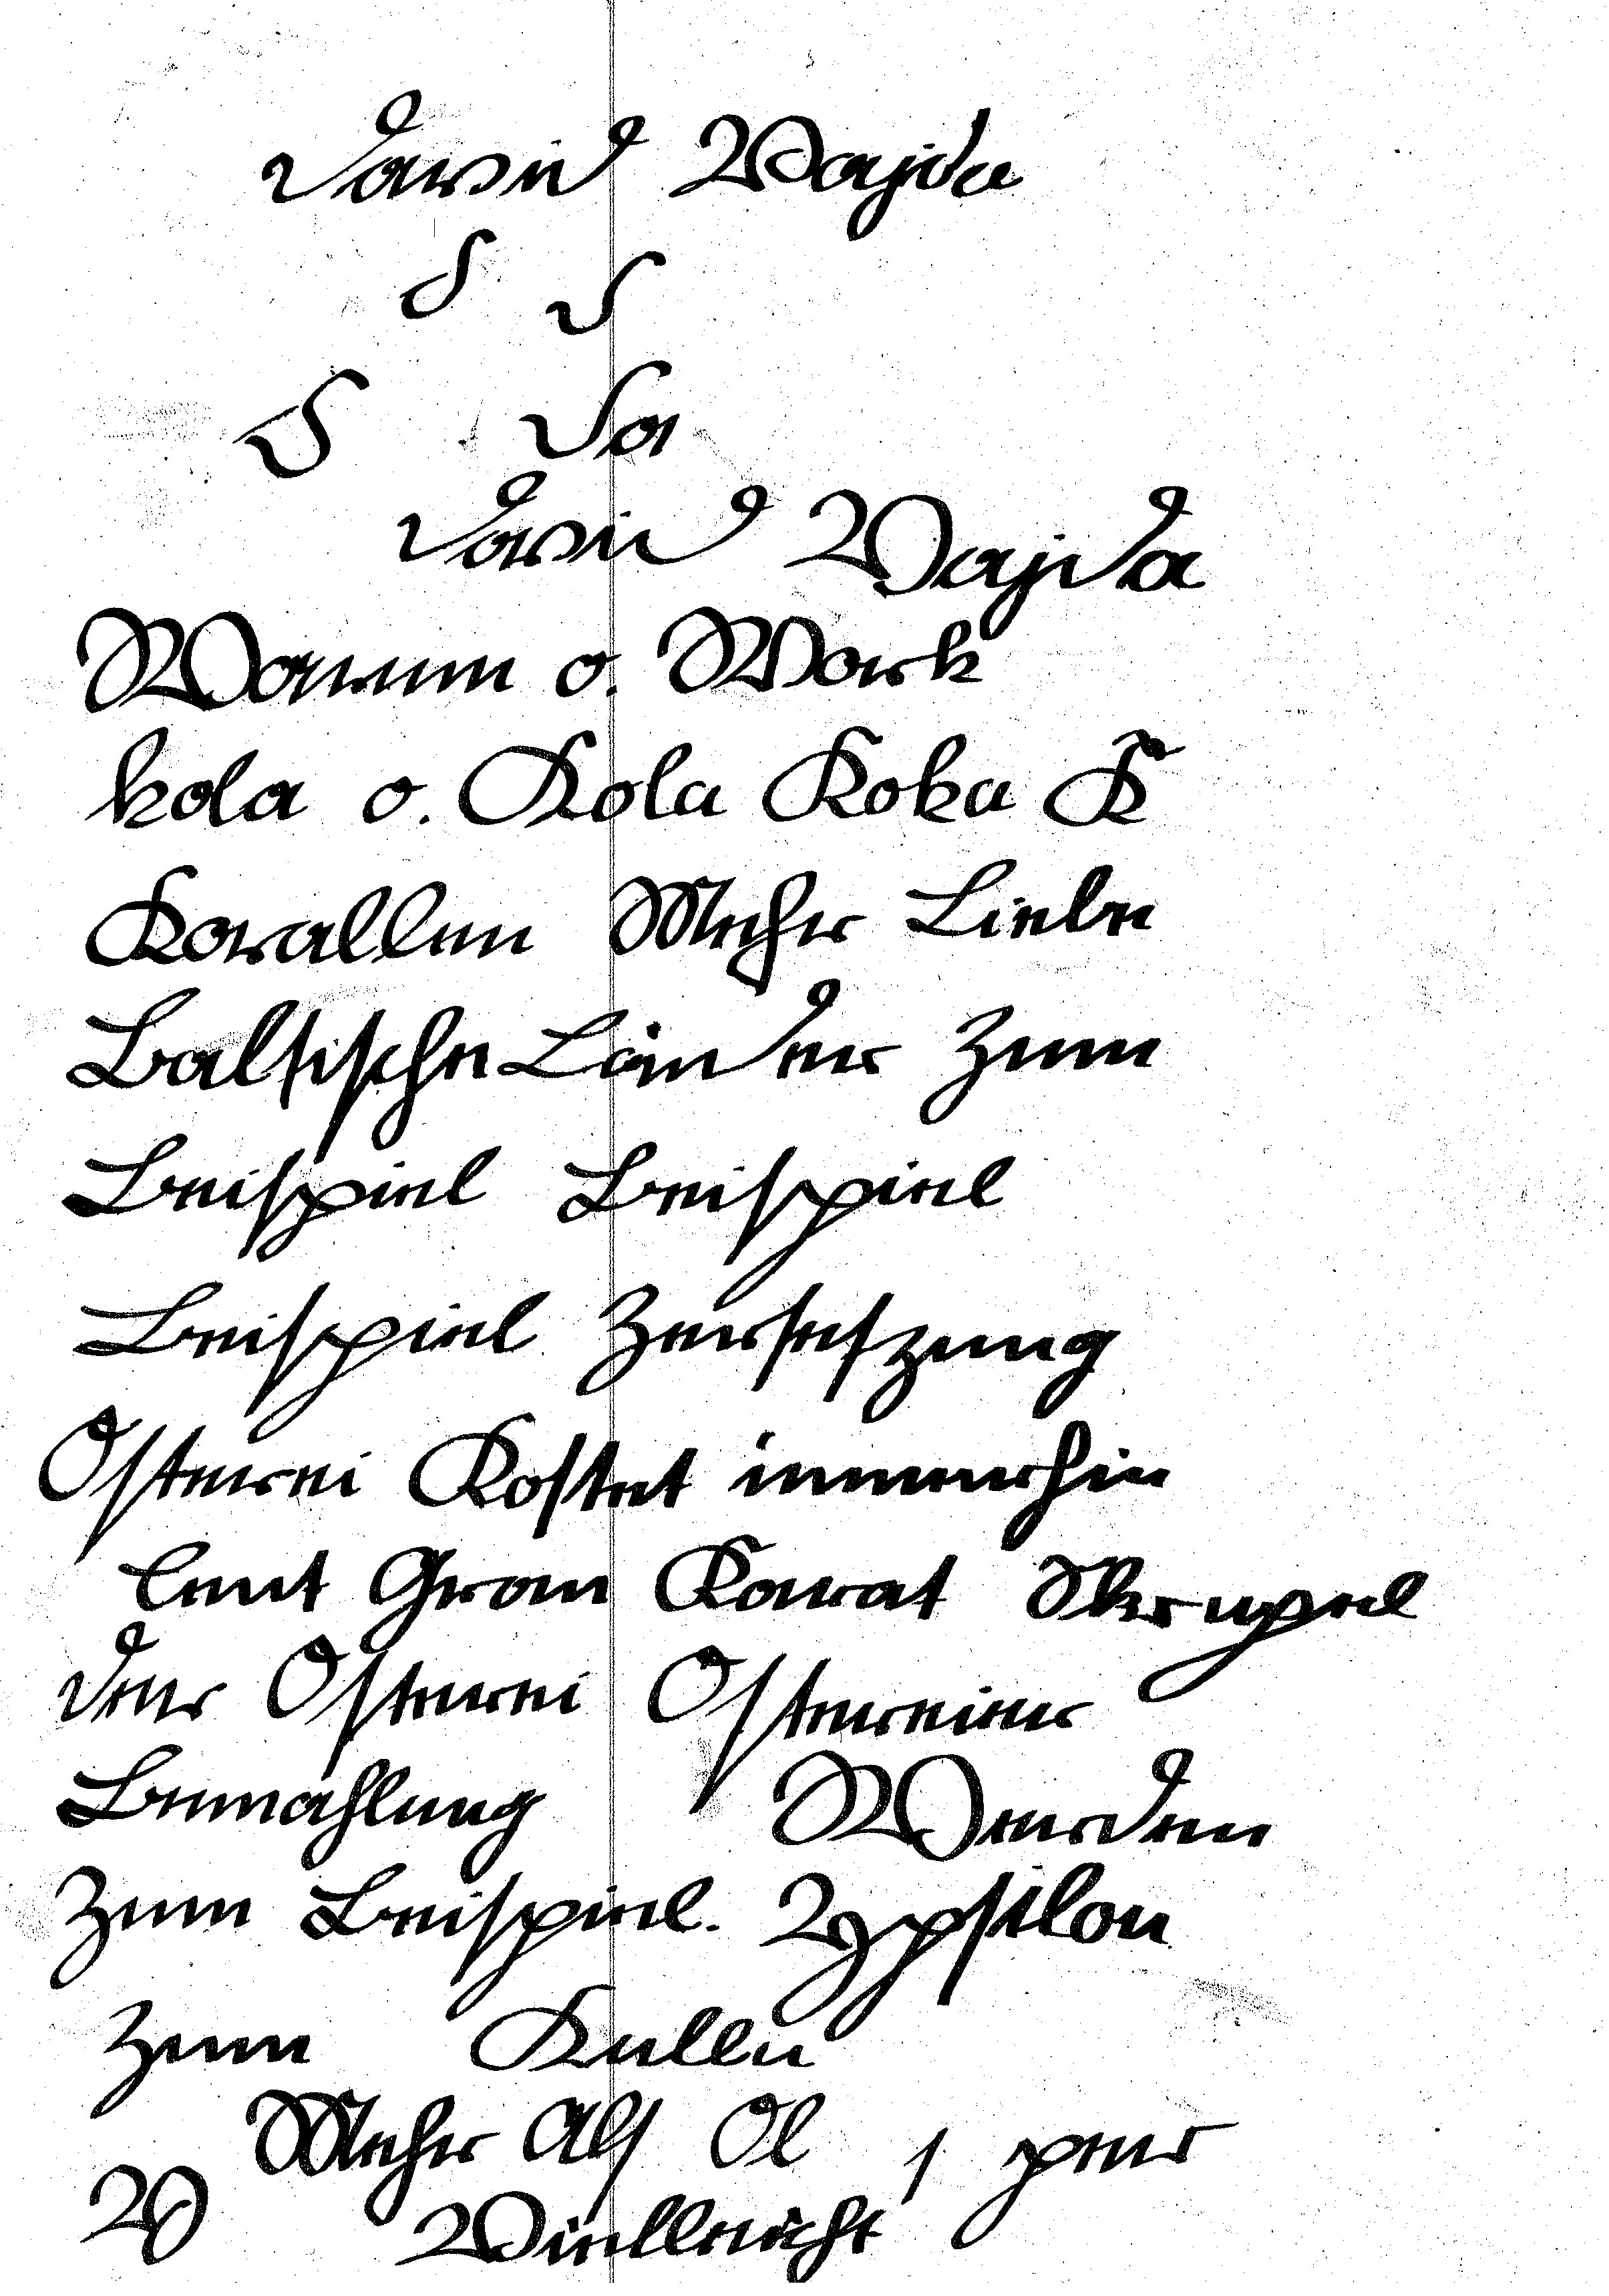 David Wajda
S S
S Da
David Wajda
Warum o. Wark
kola o. Kola Koka K
Korallen Mehr Liebe
Baltische Länder Zum
Beispiel Beispiel
Beispiel Zersetzung
Osterei Kostet immerhin
laut Gram Karat Skrupel
der Osterei Ostereier
Bemahlung Werden
Zum Beispiel. Ypsilon
Zum Kulle
Mehr Als Ol s per
W Vielleicht